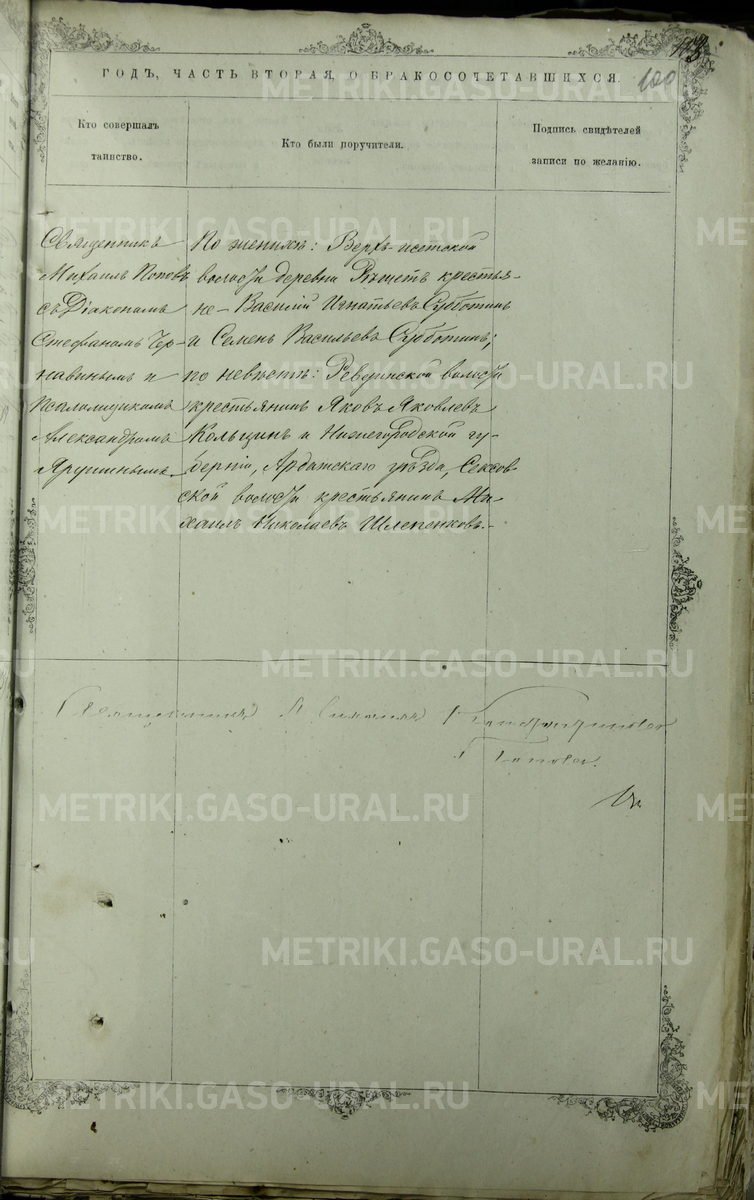 ГОДЪ, ЧАСТЬ ВТОРАЯ, О БРАКОСОЧЕТАВШИХСЯ.
100
Кто совершалъ
таинство.
Кто были поручители.
Подпись свидѣтелей
записи по желанію.
Священникъ
Михаилъ Поповъ
съ Діакономъ
Стефаномъ Чер-
навинымъ и
Псаломщикомъ
Александромъ
Ярушинымъ.
По женихѣ: Верхъ-исетской
волости деревни Рѣшетъ крестья-
не - Василій Игнатьевъ Субботинъ
и Семенъ Васильевъ Субботинъ;
по невѣстѣ: Ревдинской волости
крестьянинъ Яковъ Яковлевъ
Кольцинъ и Нижегородской гу-
берніи, Ардатскаго уѣзда,
ской волости крестьянинъ Ми-
хаилъ Николаевъ Шлепенковъ.-
Священникъ
Поповъ.
METRIKI.GASO-URAL.RU